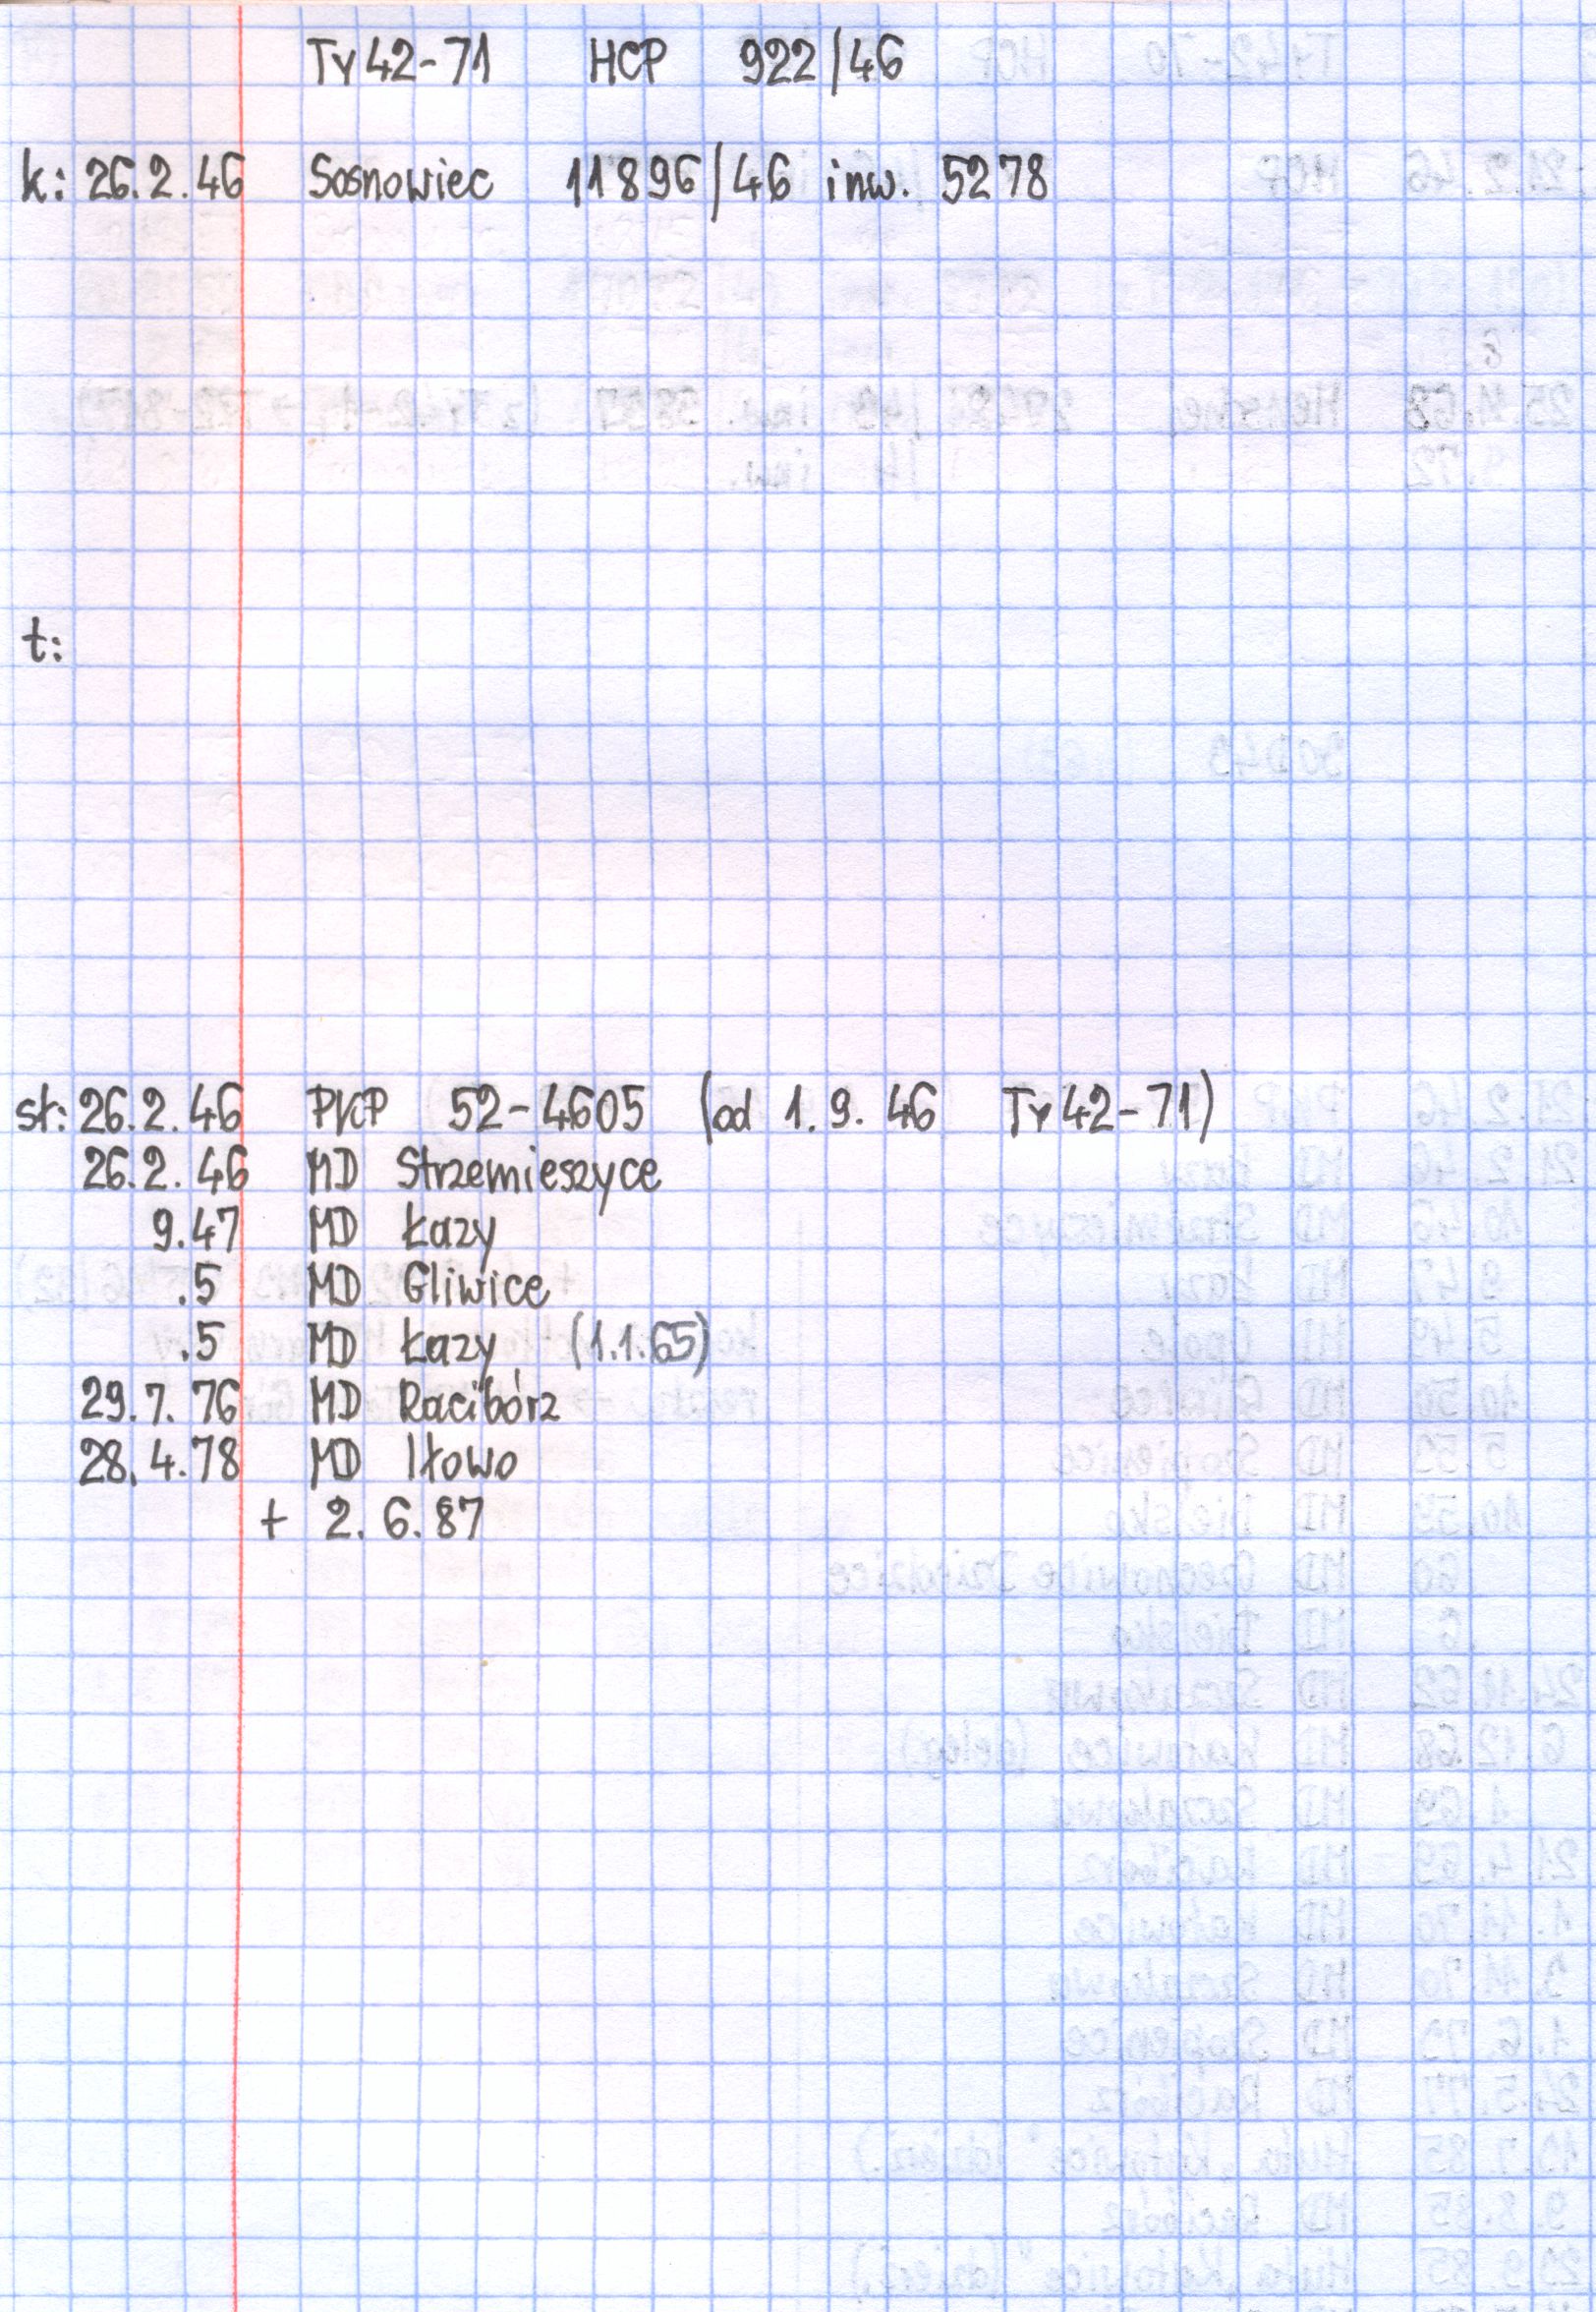 Ty42-71 HCP 922/46
k: 26.2.46 Sosnowiec 11896/46 inw. 5278
t:
st: 26.2.46 PKP 52-4605 (od 1.9.46 Ty42-71)
26.2.46 MD Strzemieszyce
9.47 MD Łazy
.5 MD Gliwice
.5 MD Łazy (1.1.65)
29.7.76 MD Racibórz
28.4.78 MD Iłowo
+ 2.6.87